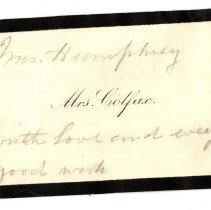 Mrs. Humphrey
Mrs. Colfax.
with love and every
good wish